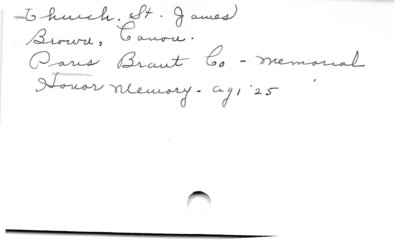 Church, St. James
Brown, Canon.
Paris Brant Co - Memorial
Honor Memory - ag 1 '25